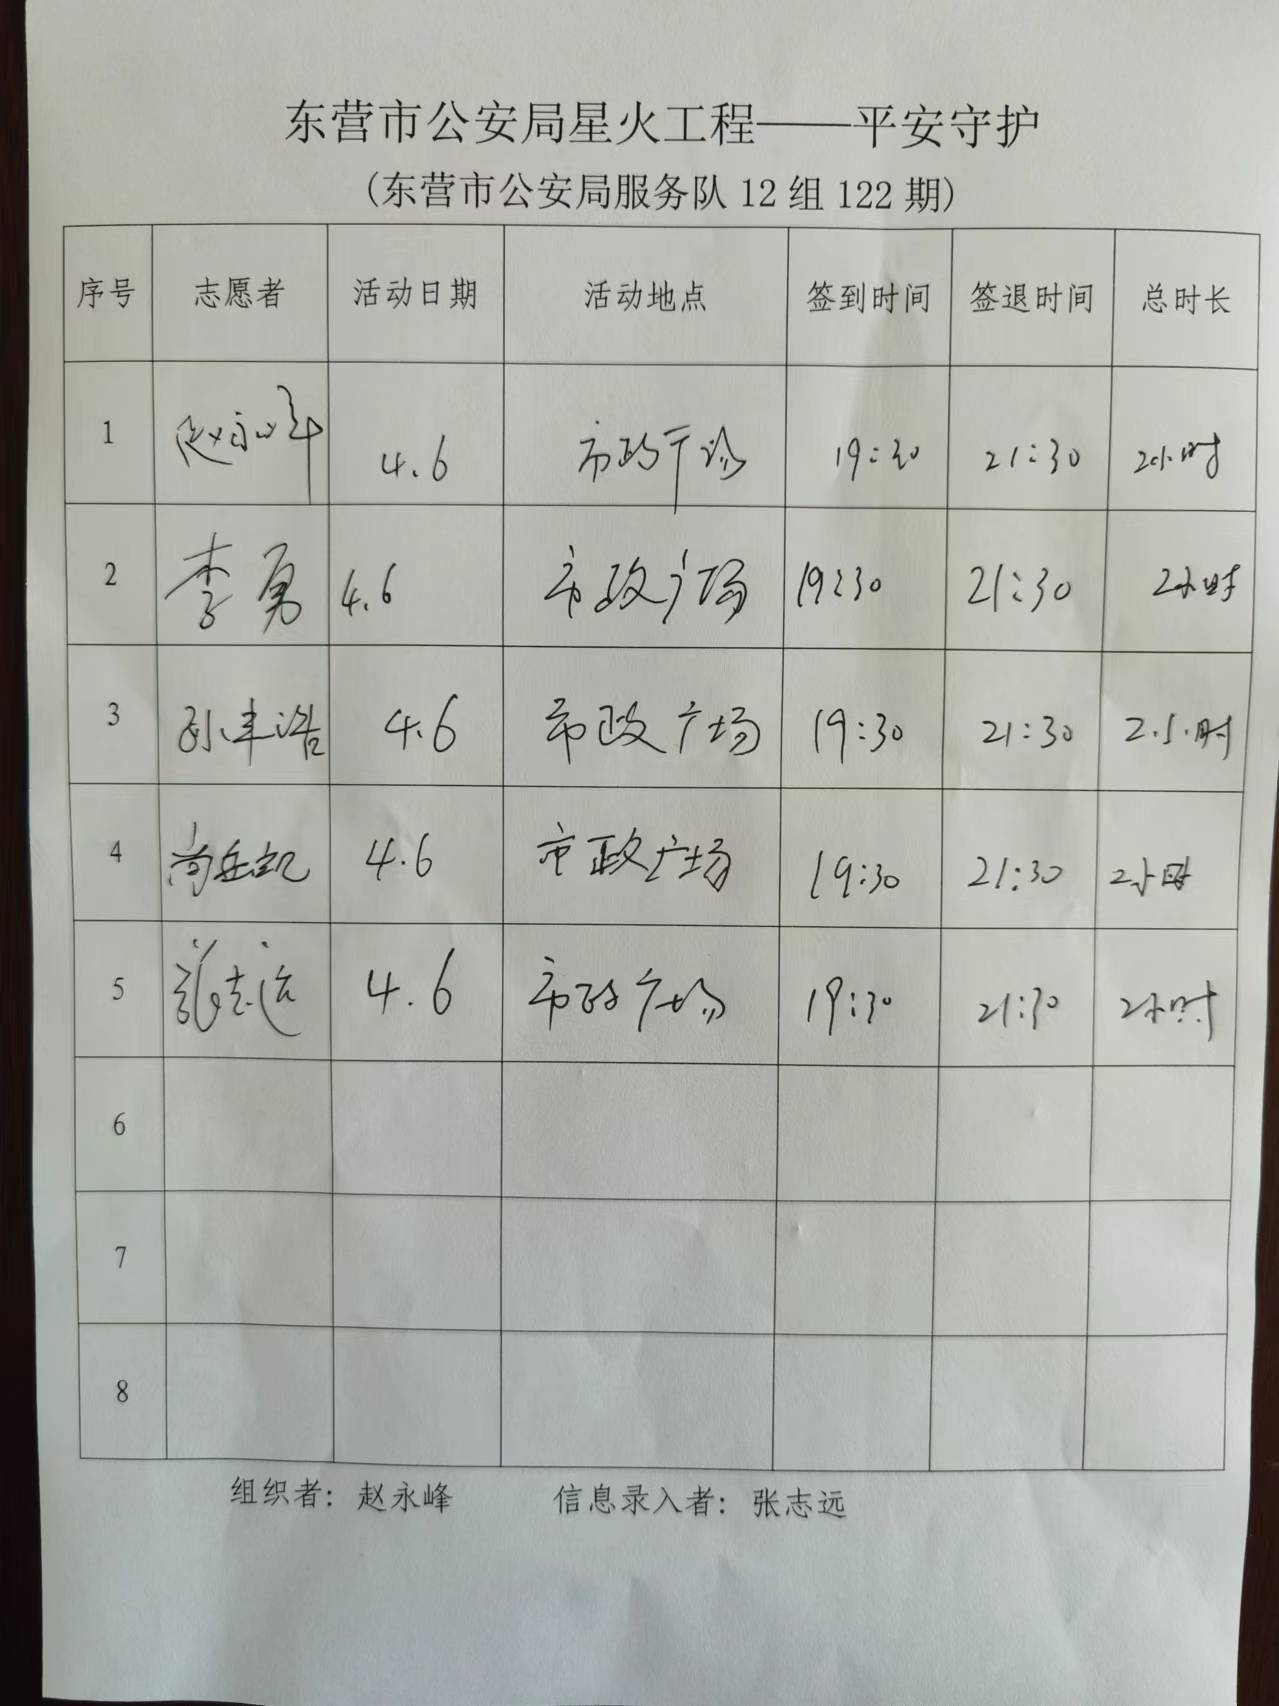 东营市公安局星火工程——平安守护
(东营市公安局服务队 12 组 122 期)
序号 志愿者 活动日期 活动地点 签到时间 签退时间 总时长
1 赵永峰 4.6 市政广场 19:30 21:30 2小时
2 李勇 4.6 市政广场 19:30 21:30 2小时
3 孙丰浩 4.6 市政广场 19:30 21:30 2小时
4 尚岳凯 4.6 市政广场 19:30 21:30 2小时
5 张志远 4.6 市政广场 19:30 21:30 2小时
6
7
8
组织者：赵永峰 信息录入者：张志远